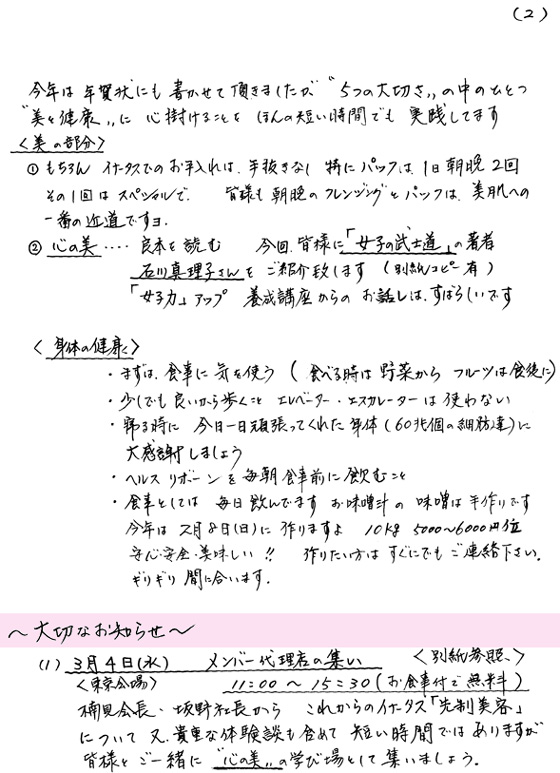 (2)
今年は年賀状にも書かせて頂きましたが“5つの大切さ„の中のひとつ
“美と健康„に心掛けることを ほんの短い時間でも 実践してます
<美の部分>
① もちろん イオタスでのお手入れは、手抜きなし 特にパックは、1日朝晩2回
その1回は スペシャルで、 皆様も朝晩のクレンジングとパックは、美肌への
一番の近道ですヨ.
② 心の美‥‥ 良本を読む 今回、皆様に「女子の武士道」の著者
石川真理子さんを ご紹介致します (別紙コピー有)
「女子力」アップ 養成講座からの お話しは、すばらしいです
<身体の健康>
・まずは、食事に気を使う (食べる時は野菜から フルーツは食後に)
・少しでも良いから歩くこと エレベーター・エスカレーターは使わない
・寝る時に 今日一日頑張ってくれた身体(60兆個の細胞達)に
大感謝しましょう
・ヘルスリボーンを毎朝食事前に飲むこと
・食事としては 毎日飲んでます お味噌汁の味噌は手作りです
今年は 2月8日(日)に作りますよ 10kg 5000〜6000円位
安心安全・美味しい!! 作りたい方は すぐにでもご連絡下さい。
ギリギリ間に合います.
〜大切なお知らせ〜
(1) 3月4日(水) メンバー代理店の集い <別紙参照、>
<東京会場> 11:00〜15:30(お食事付で無料)
楠見会長・坂野社長から これからのイオタス「先制美容」
について 又、貴重な体験談も含めて 短い時間ではありますが
皆様とご一緒に “心の美„の学び場として集いましょう。